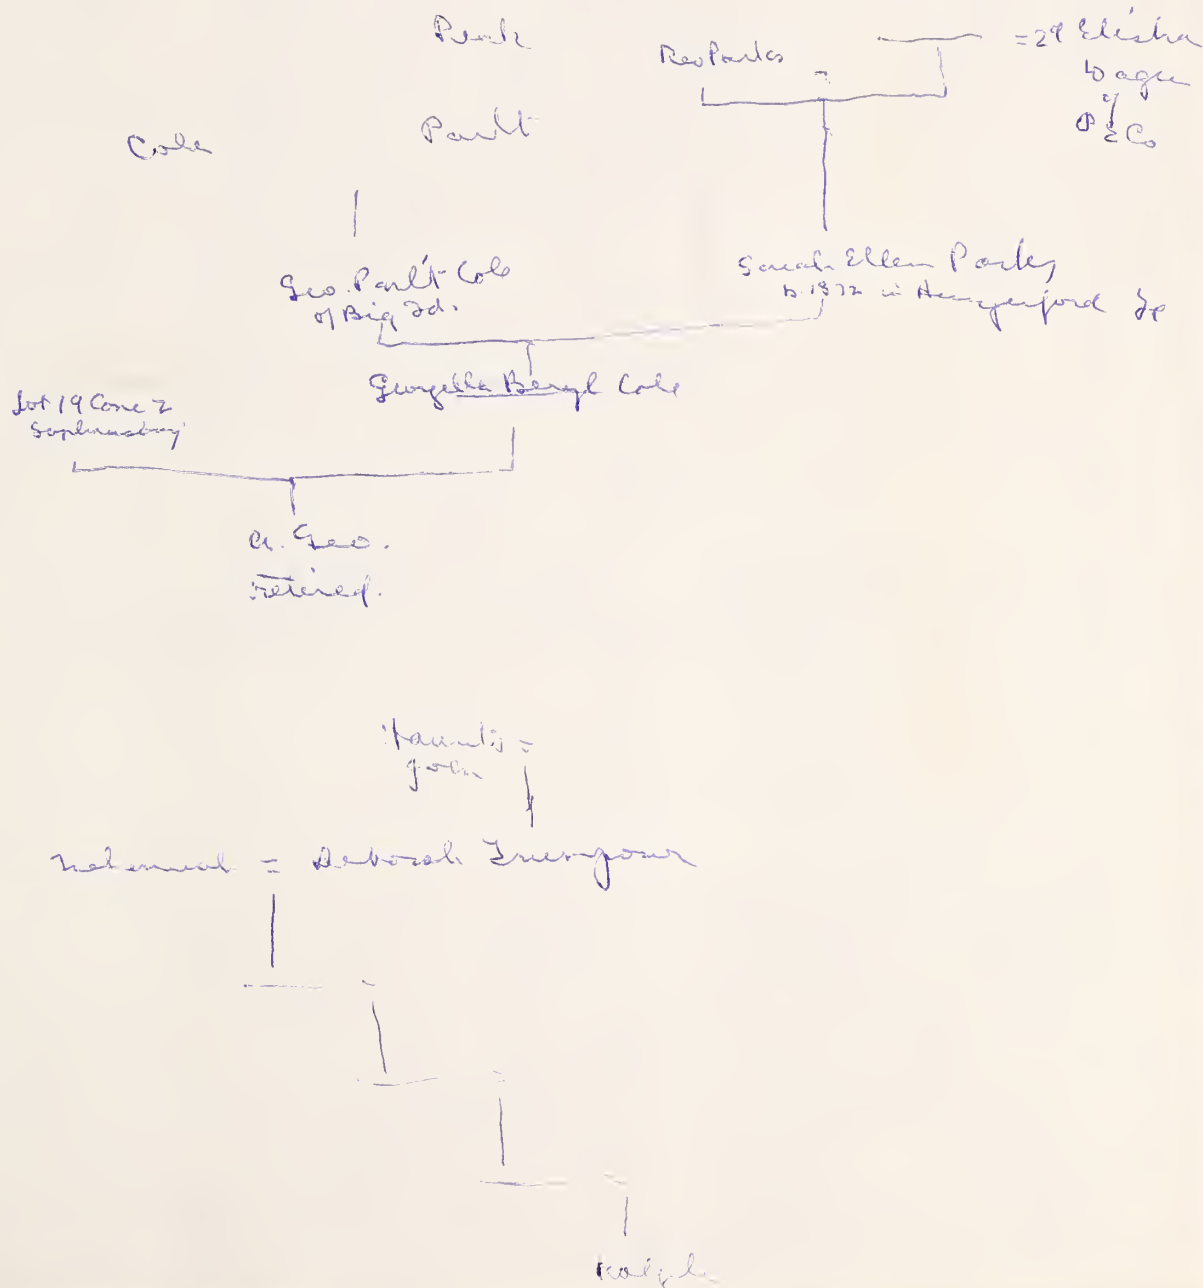 Peck
Rev Parks = = 2d Elisha
of
P E Co
Cole Parlt
Geo. Parlt Cole
of Big Id.
Sarah Ellen Parks
b. 1872 in Hungerford Tp
Georgella Beryl Cole
Lot 19 Conc 2
Sophiasburg
A. Geo.
retired.
=
John
= Deborah Trumpour
Ralph